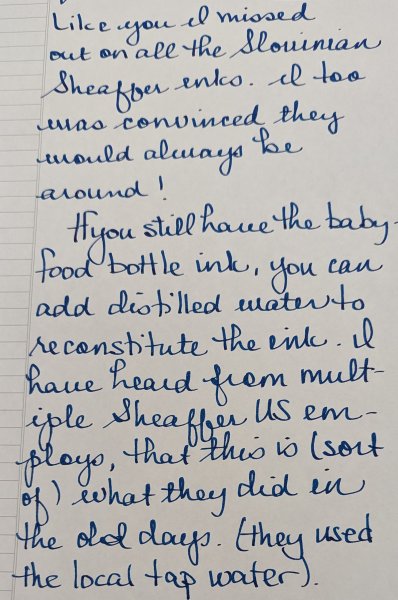 Like you I missed
out on all the Slovinian
Sheaffer inks. I too
was convinced they
would always be
around!
If you still have the baby-
food bottle ink, you can
add distilled water to
reconstitute the ink. I
have heard from mult-
iple Sheaffer US em-
ploys, that this is (sort
of) what they did in
the old days. (they used
the local tap water).